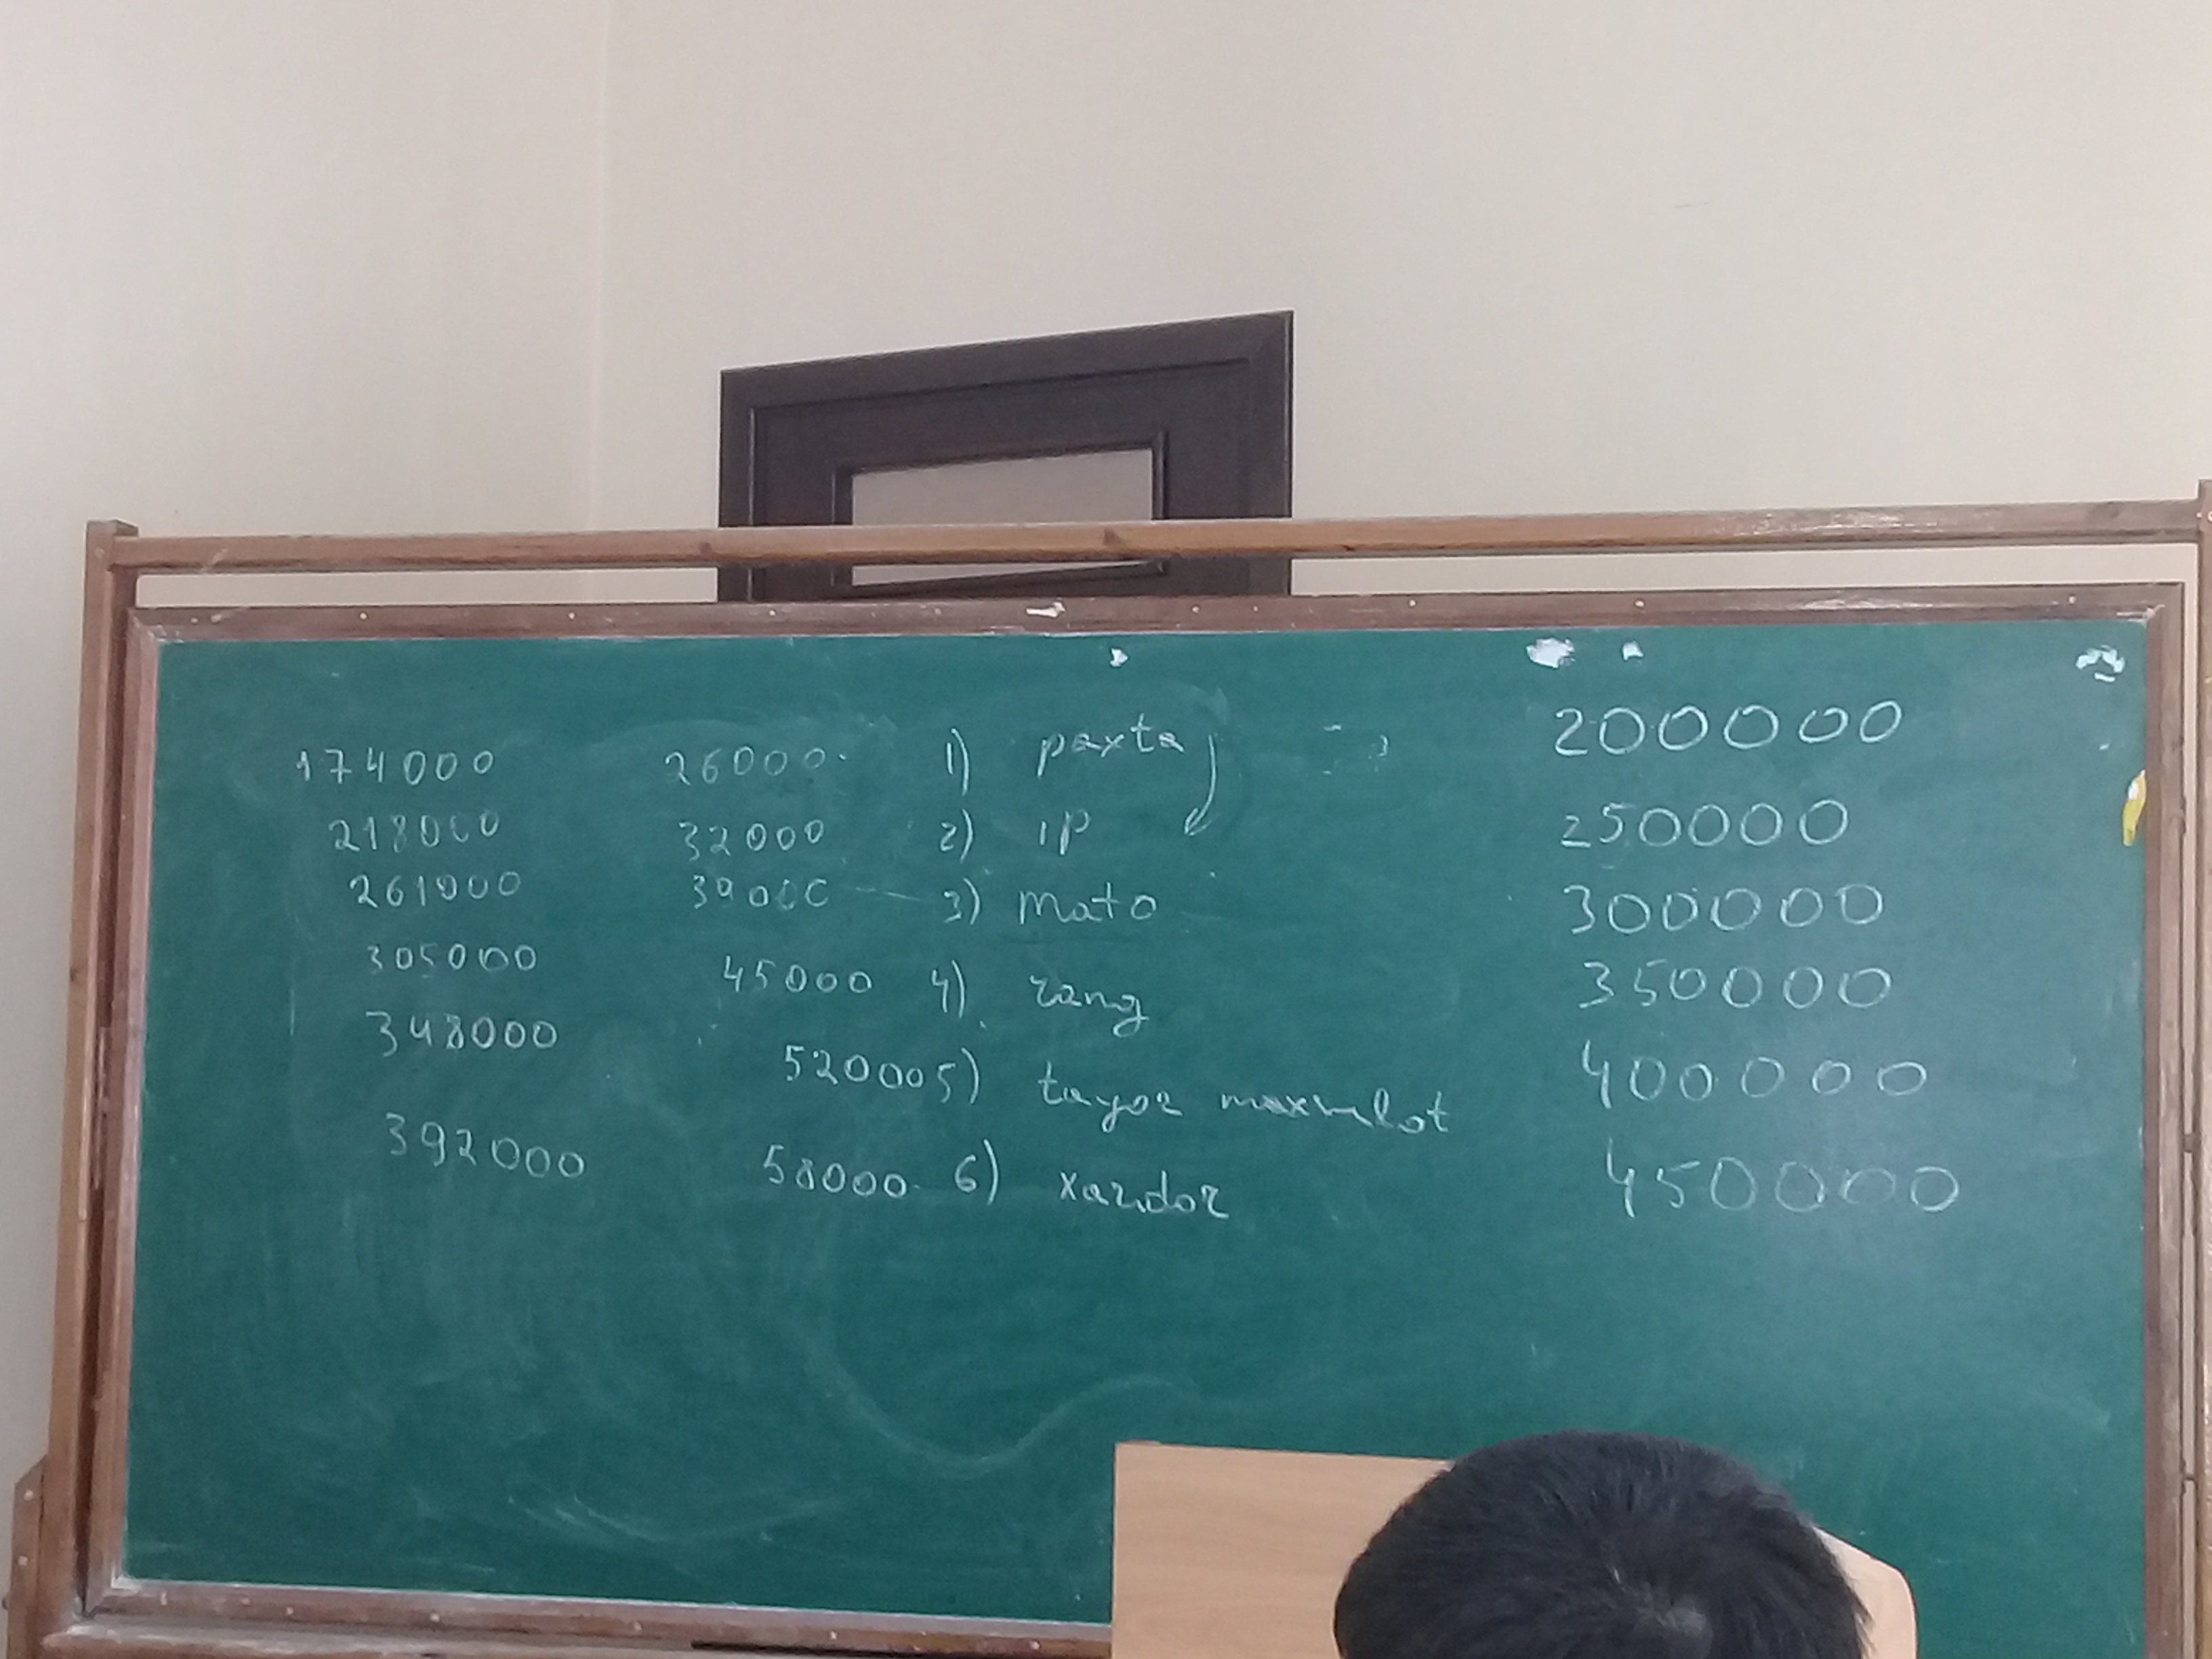 174000 26000 1) paxta 200000
218000 32000 2) ip 250000
261000 39000 3) mato 300000
305000 45000 4) rang 350000
348000 52000 5) tayor maxsulot 400000
392000 58000 6) xaridor 450000